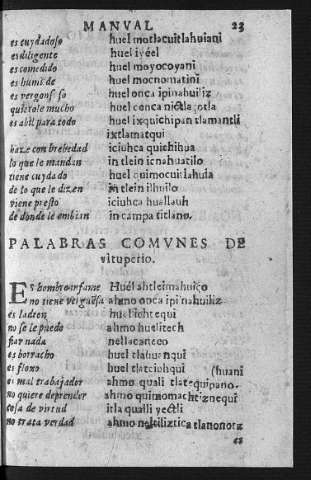 MANVAL 23
es cuydadoso huel motlacuitlahuiani
es diligente huel iyéel
es comedido huel moyocoyani
es humilde huel mocnomatini
es vergonsoso huel onca ipinahuiliz
quierole mucho huel conca nictlaçotla
es abil para todo huel ixquichipan tlamantli
ixtlamatqui
haze con brebedad iciuhca quichihua
lo que le mandan in tlein icnahuatilo
tiene cuydado huel quimocuitlahuia
de lo que le dizen in tlein ilhuilo
viene presto iciuhca huallauh
de donde le embian in campa titlano.
PALABRAS COMVNES DE
vituperio.
Es hombre infame Huél ahtleimahuiço
no tiene verguẽsa ahmo onca ipinahuiliz
es ladron huel ichtequi
no se le puedo ahmo huelitech
fiar nada nellacaneco
es borracho huel tlahuanqui
es floxo huel tlatziohqui (huani
es mal trabajador ahmo qualli tlatequipano-
no quiere deprender ahmo quimomachtiznequi
cosa de virtud itla qualli yectli
no trata verdad ahmo neltiliztica tlanonotz
es